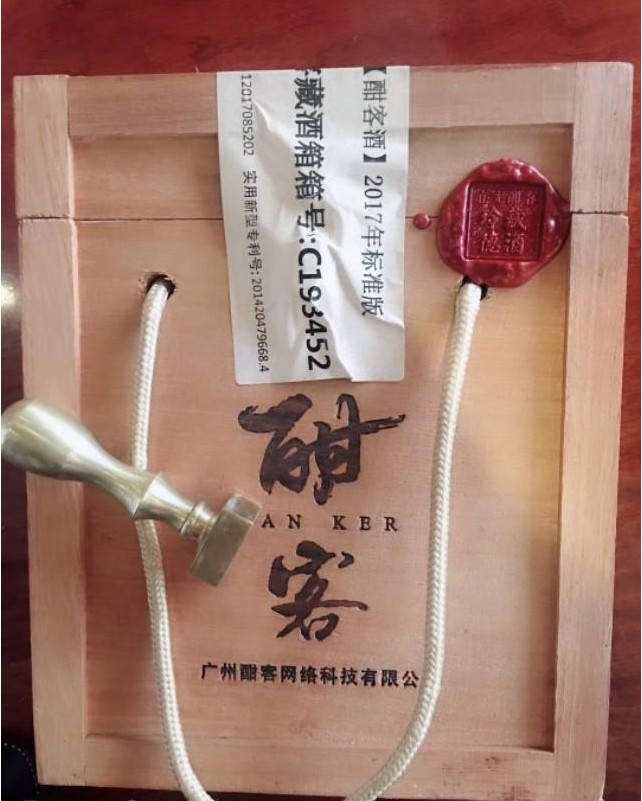 【酣客酒】2017年标准版
藏酒箱箱号:C193452
12017085202 实用新型专利号:201420479668.4
酣
AN KER
客
广州酣客网络科技有限公